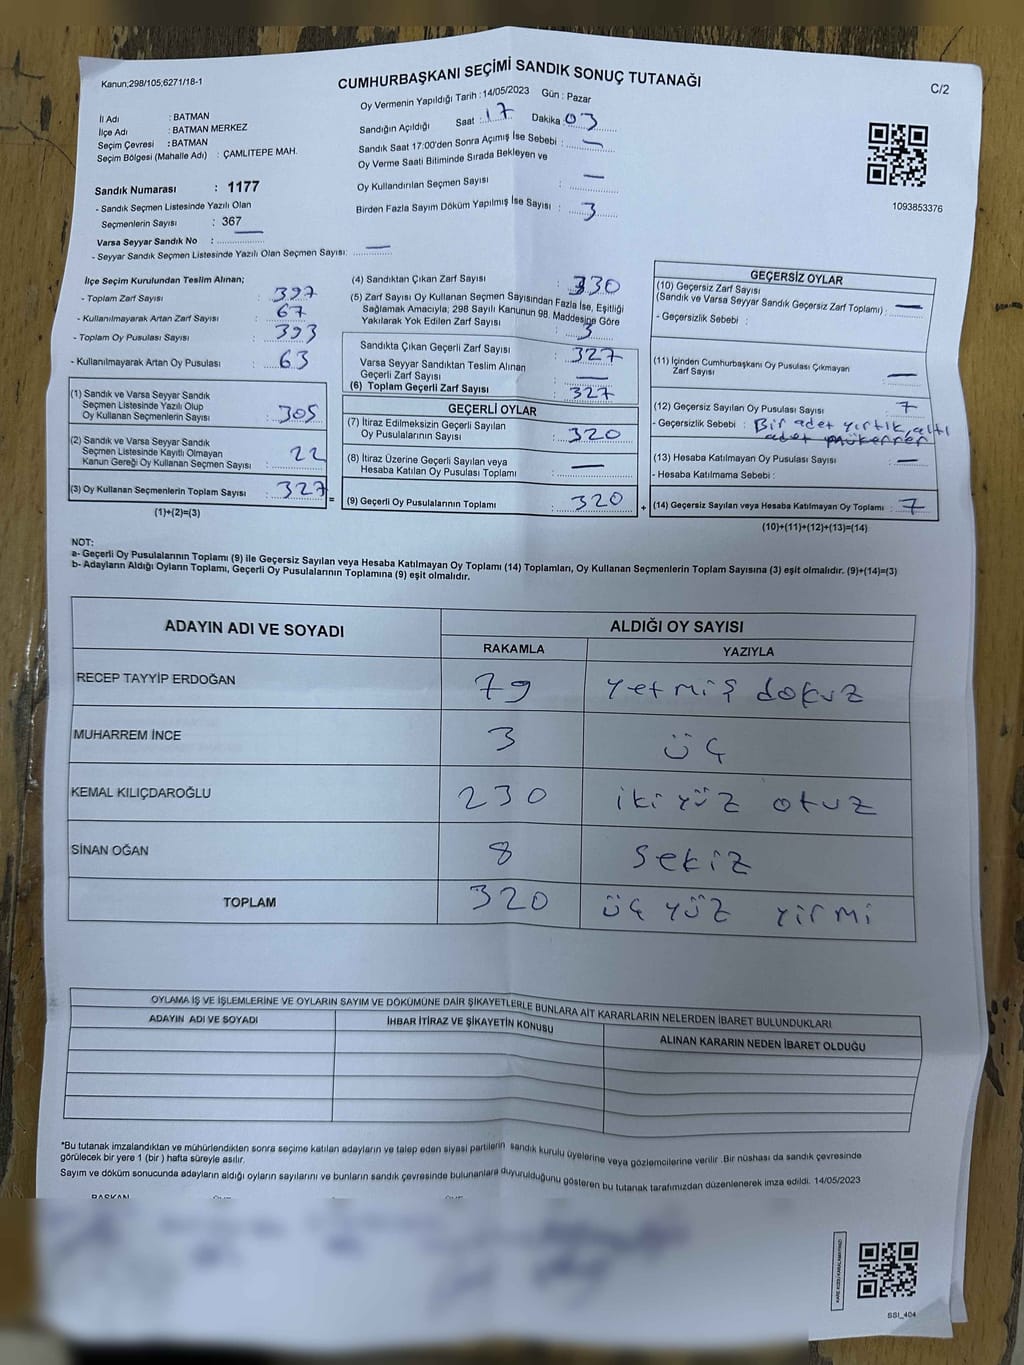 Kanun,298/105;6271/18-1
CUMHURBAŞKANI SEÇİMİ SANDIK SONUÇ TUTANAĞI
C/2
Oy Vermenin Yapıldığı Tarih : 14/05/2023 Gün : Pazar
İl Adı : BATMAN
İlçe Adı : BATMAN MERKEZ
Seçim Çevresi : BATMAN
Seçim Bölgesi (Mahalle Adı) : ÇAMLITEPE MAH.
Sandığın Açıldığı Saat : 17 Dakika 03
Sandık Saat 17:00'den Sonra Açımış İse Sebebi : —
Oy Verme Saati Bitiminde Sırada Bekleyen ve
Oy Kullandırılan Seçmen Sayısı : —
Birden Fazla Sayım Döküm Yapılmış İse Sayısı : 3
1093853376
Sandık Numarası : 1177
- Sandık Seçmen Listesinde Yazılı Olan
Seçmenlerin Sayısı : 367
Varsa Seyyar Sandık No : —
- Seyyar Sandık Seçmen Listesinde Yazılı Olan Seçmen Sayısı: —
İlçe Seçim Kurulundan Teslim Alınan;
- Toplam Zarf Sayısı : 397
- Kullanılmayarak Artan Zarf Sayısı : 67
- Toplam Oy Pusulası Sayısı : 393
- Kullanılmayarak Artan Oy Pusulası : 63
(1) Sandık ve Varsa Seyyar Sandık
Seçmen Listesinde Yazılı Olup
Oy Kullanan Seçmenlerin Sayısı : 305
(2) Sandık ve Varsa Seyyar Sandık
Seçmen Listesinde Kayıtlı Olmayan
Kanun Gereği Oy Kullanan Seçmen Sayısı : 22
(3) Oy Kullanan Seçmenlerin Toplam Sayısı : 327
(1)+(2)=(3)
(4) Sandıktan Çıkan Zarf Sayısı : 330
(5) Zarf Sayısı Oy Kullanan Seçmen Sayısından Fazla İse, Eşitliği
Sağlamak Amacıyla; 298 Sayılı Kanunun 98. Maddesine Göre
Yakılarak Yok Edilen Zarf Sayısı : 3
Sandıkta Çıkan Geçerli Zarf Sayısı : 327
Varsa Seyyar Sandıktan Teslim Alınan
Geçerli Zarf Sayısı : —
(6) Toplam Geçerli Zarf Sayısı : 327
GEÇERLİ OYLAR
(7) İtiraz Edilmeksizin Geçerli Sayılan
Oy Pusulalarının Sayısı : 320
(8) İtiraz Üzerine Geçerli Sayılan veya
Hesaba Katılan Oy Pusulası Toplamı : —
= (9) Geçerli Oy Pusulalarının Toplamı : 320 +
GEÇERSİZ OYLAR
(10) Geçersiz Zarf Sayısı
(Sandık ve Varsa Seyyar Sandık Geçersiz Zarf Toplamı) : —
- Geçersizlik Sebebi :
(11) İçinden Cumhurbaşkanı Oy Pusulası Çıkmayan
Zarf Sayısı : —
(12) Geçersiz Sayılan Oy Pusulası Sayısı : 7
- Geçersizlik Sebebi : Bir adet yırtık, altı
adet mükerrer
(13) Hesaba Katılmayan Oy Pusulası Sayısı : —
- Hesaba Katılmama Sebebi :
(14) Geçersiz Sayılan veya Hesaba Katılmayan Oy Toplamı : 7
(10)+(11)+(12)+(13)=(14)
NOT:
a- Geçerli Oy Pusulalarının Toplamı (9) ile Geçersiz Sayılan veya Hesaba Katılmayan Oy Toplamı (14) Toplamları, Oy Kullanan Seçmenlerin Toplam Sayısına (3) eşit olmalıdır. (9)+(14)=(3)
b- Adayların Aldığı Oyların Toplamı, Geçerli Oy Pusulalarının Toplamına (9) eşit olmalıdır.
ADAYIN ADI VE SOYADI ALDIĞI OY SAYISI
RAKAMLA YAZIYLA
RECEP TAYYİP ERDOĞAN 79 yetmiş dokuz
MUHARREM İNCE 3 üç
KEMAL KILIÇDAROĞLU 230 iki yüz otuz
SİNAN OĞAN 8 sekiz
TOPLAM 320 üç yüz yirmi
OYLAMA İŞ VE İŞLEMLERİNE VE OYLARIN SAYIM VE DÖKÜMÜNE DAİR ŞİKAYETLERLE BUNLARA AİT KARARLARIN NELERDEN İBARET BULUNDUKLARI
ADAYIN ADI VE SOYADI İHBAR İTİRAZ VE ŞİKAYETİN KONUSU ALINAN KARARIN NEDEN İBARET OLDUĞU
*Bu tutanak imzalandıktan ve mühürlendikten sonra seçime katılan adayların ve talep eden siyasi partilerin sandık kurulu üyelerine veya gözlemcilerine verilir .Bir nüshası da sandık çevresinde
görülecek bir yere 1 (bir ) hafta süreyle asılır.
Sayım ve döküm sonucunda adayların aldığı oyların sayılarını ve bunların sandık çevresinde bulunanlara duyurulduğunu gösteren bu tutanak tarafımızdan düzenlenerek imza edildi. 14/05/2023
BAŞKAN
SSI_404